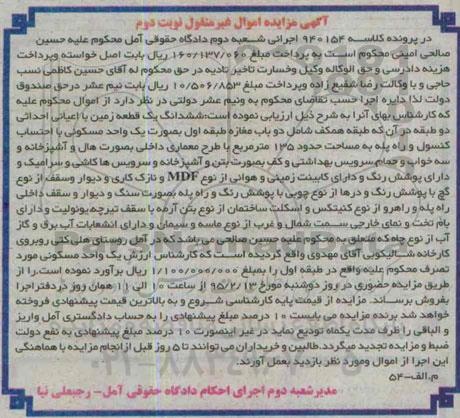 آگهی مزایده اموال غیرمنقول نوبت دوم
در پرونده کلاسه ۹۴۰۱۵۴ اجرائی شعبه دوم دادگاه حقوقی آمل محکوم علیه حسین
صالحی امینی محکوم است به پرداخت مبلغ ۱۶۰/۱۳۷/۰۶۰ ریال بابت اصل خواسته وپرداخت
هزینه دادرسی و حق الوکاله وکیل وخسارت تاخیر تادیه در حق محکوم له آقای حسین کاظمی نسب
حاجی و با وکالت رضا شفیع زاده وپرداخت مبلغ ۱۰/۵۰۶/۸۵۳ ریال بابت نیم عشر درحق صندوق
دولت لذا دایره اجرا حسب تقاضای محکوم به ونیم عشر دولتی در نظر دارد از اموال محکوم علیه
که کارشناس بهای آنرا به شرح ذیل ارزیابی نموده است:ششدانگ یک قطعه زمین با اعیانی احداثی
دو طبقه در آن که طبقه همکف شامل دو باب مغازه طبقه اول بصورت یک واحد مسکونی با احتساب
کنسول و راه پله به مساحت حدود ۱۳۵ مترمربع با طرح معماری داخلی بصورت هال و آشپزخانه و
سه خواب و حمام سرویس بهداشتی و کف بصورت بتن و آشپزخانه و سرویس ها کاشی و سرامیک و
دارای پوشش رنگ و دارای کابینت زمینی و هوائی از نوع MDF و نازک کاری و دیوار وسقف از نوع
گچ با پوشش رنگ و درها از نوع چوبی با پوشش رنگ و راه پله بصورت سنگ و دیوار و سقف داخلی
راه پله و راهرو از نوع کنیتکس و اسکلت ساختمان از نوع بتن آرمه با سقف تیرچه یونولیت و دارای
بام تخت و نمای خارجی سمت شمال و غرب از نوع ماسه و سیمان و دارای انشعابات آب برق و گاز
آب از نوع چاه که متعلق به محکوم علیه حسین صالحی می باشد که در آمل روستای هلی کتی روبروی
کارخانه شالیکوبی آقای مهدوی واقع گردیده است که کارشناس ارزش یک واحد مسکونی مورد
تصرف محکوم علیه واقع در طبقه اول را بمبلغ ۱/۱۰۰/۰۰۰/۰۰۰ ریال برآورد نموده است.را از
طریق مزایده حضوری در روز دوشنبه مورخ ۹۵/۲/۱۳ از ساعت ۱۰ الی ۱۱ همان روز دردفتراجرا
بفروش برساند. مزایده از قیمت پایه کارشناسی شروع و به بالاترین قیمت پیشنهادی فروخته
خواهد شد برنده مزایده می بایست ۱۰ درصد مبلغ پیشنهادی را به حساب دادگستری آمل واریز
و الباقی را ظرف مدت یکماه تودیع نماید در غیر اینصورت ۱۰ درصد مبلغ پیشنهادی به نفع دولت
ضبط و مزایده تجدید میگردد.طالبین و خریداران می توانند تا ۵ روز قبل از انجام مزایده با هماهنگی
این اجرا از اموال ومورد نظر بازدید بعمل آورند.
م.الف-۵۴
مدیرشعبه دوم اجرای احکام دادگاه حقوقی آمل- رجبعلی نیا